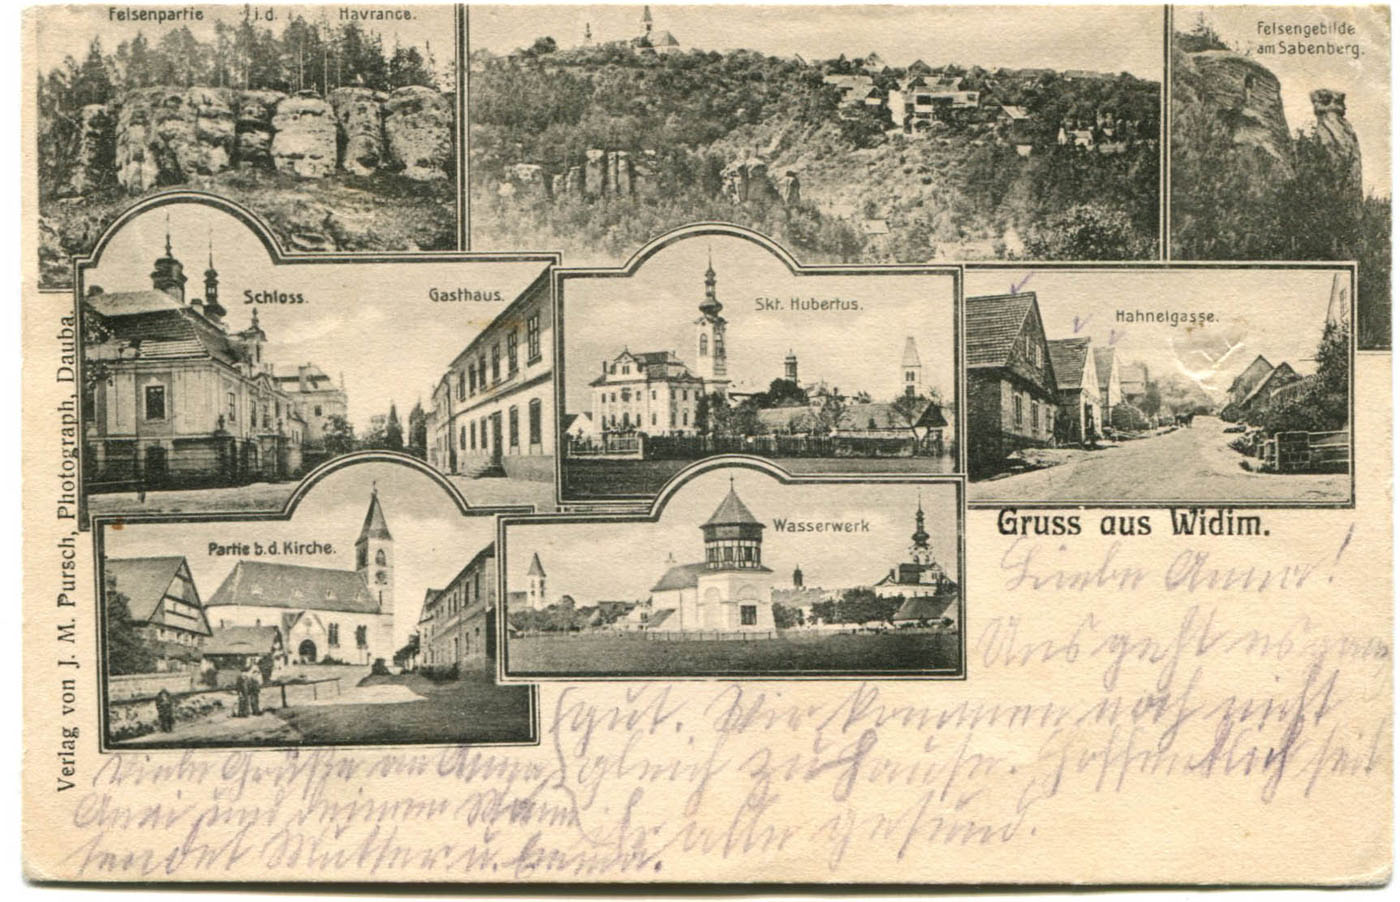 Felsenpartie i.d. Havrance.
Felsengebilde
am Sabenberg.
Schloss.
Gasthaus.
Skt. Hubertus.
Hahnelgasse.
Partie b.d. Kirche.
Wasserwerk
Gruss aus Widim.
Verlag von J. M. Pursch, Photograph, Dauba.
Liebe Anna!
Uns geht es ganz
gut. Wir kommen noch nicht
gleich zuhause. Hoffentlich seit
ihr alle gesund.
Viele Grüße an Anna
und deinen Mann
sendet Mutter u.